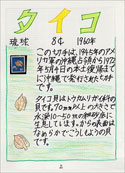 タイコ
琉球 8¢ 1960年
この切手は、1945年のアメ
リカ軍の沖縄占領から1972
年5月4日の本土復帰まで
に沖縄で発行された
です。
タイコ貝はトウカムリガイ科の
貝です。のあたりの
水深10～50mの砂地に
生息しています。からの表面は
なめらかでごうしょうの貝で
す。
2